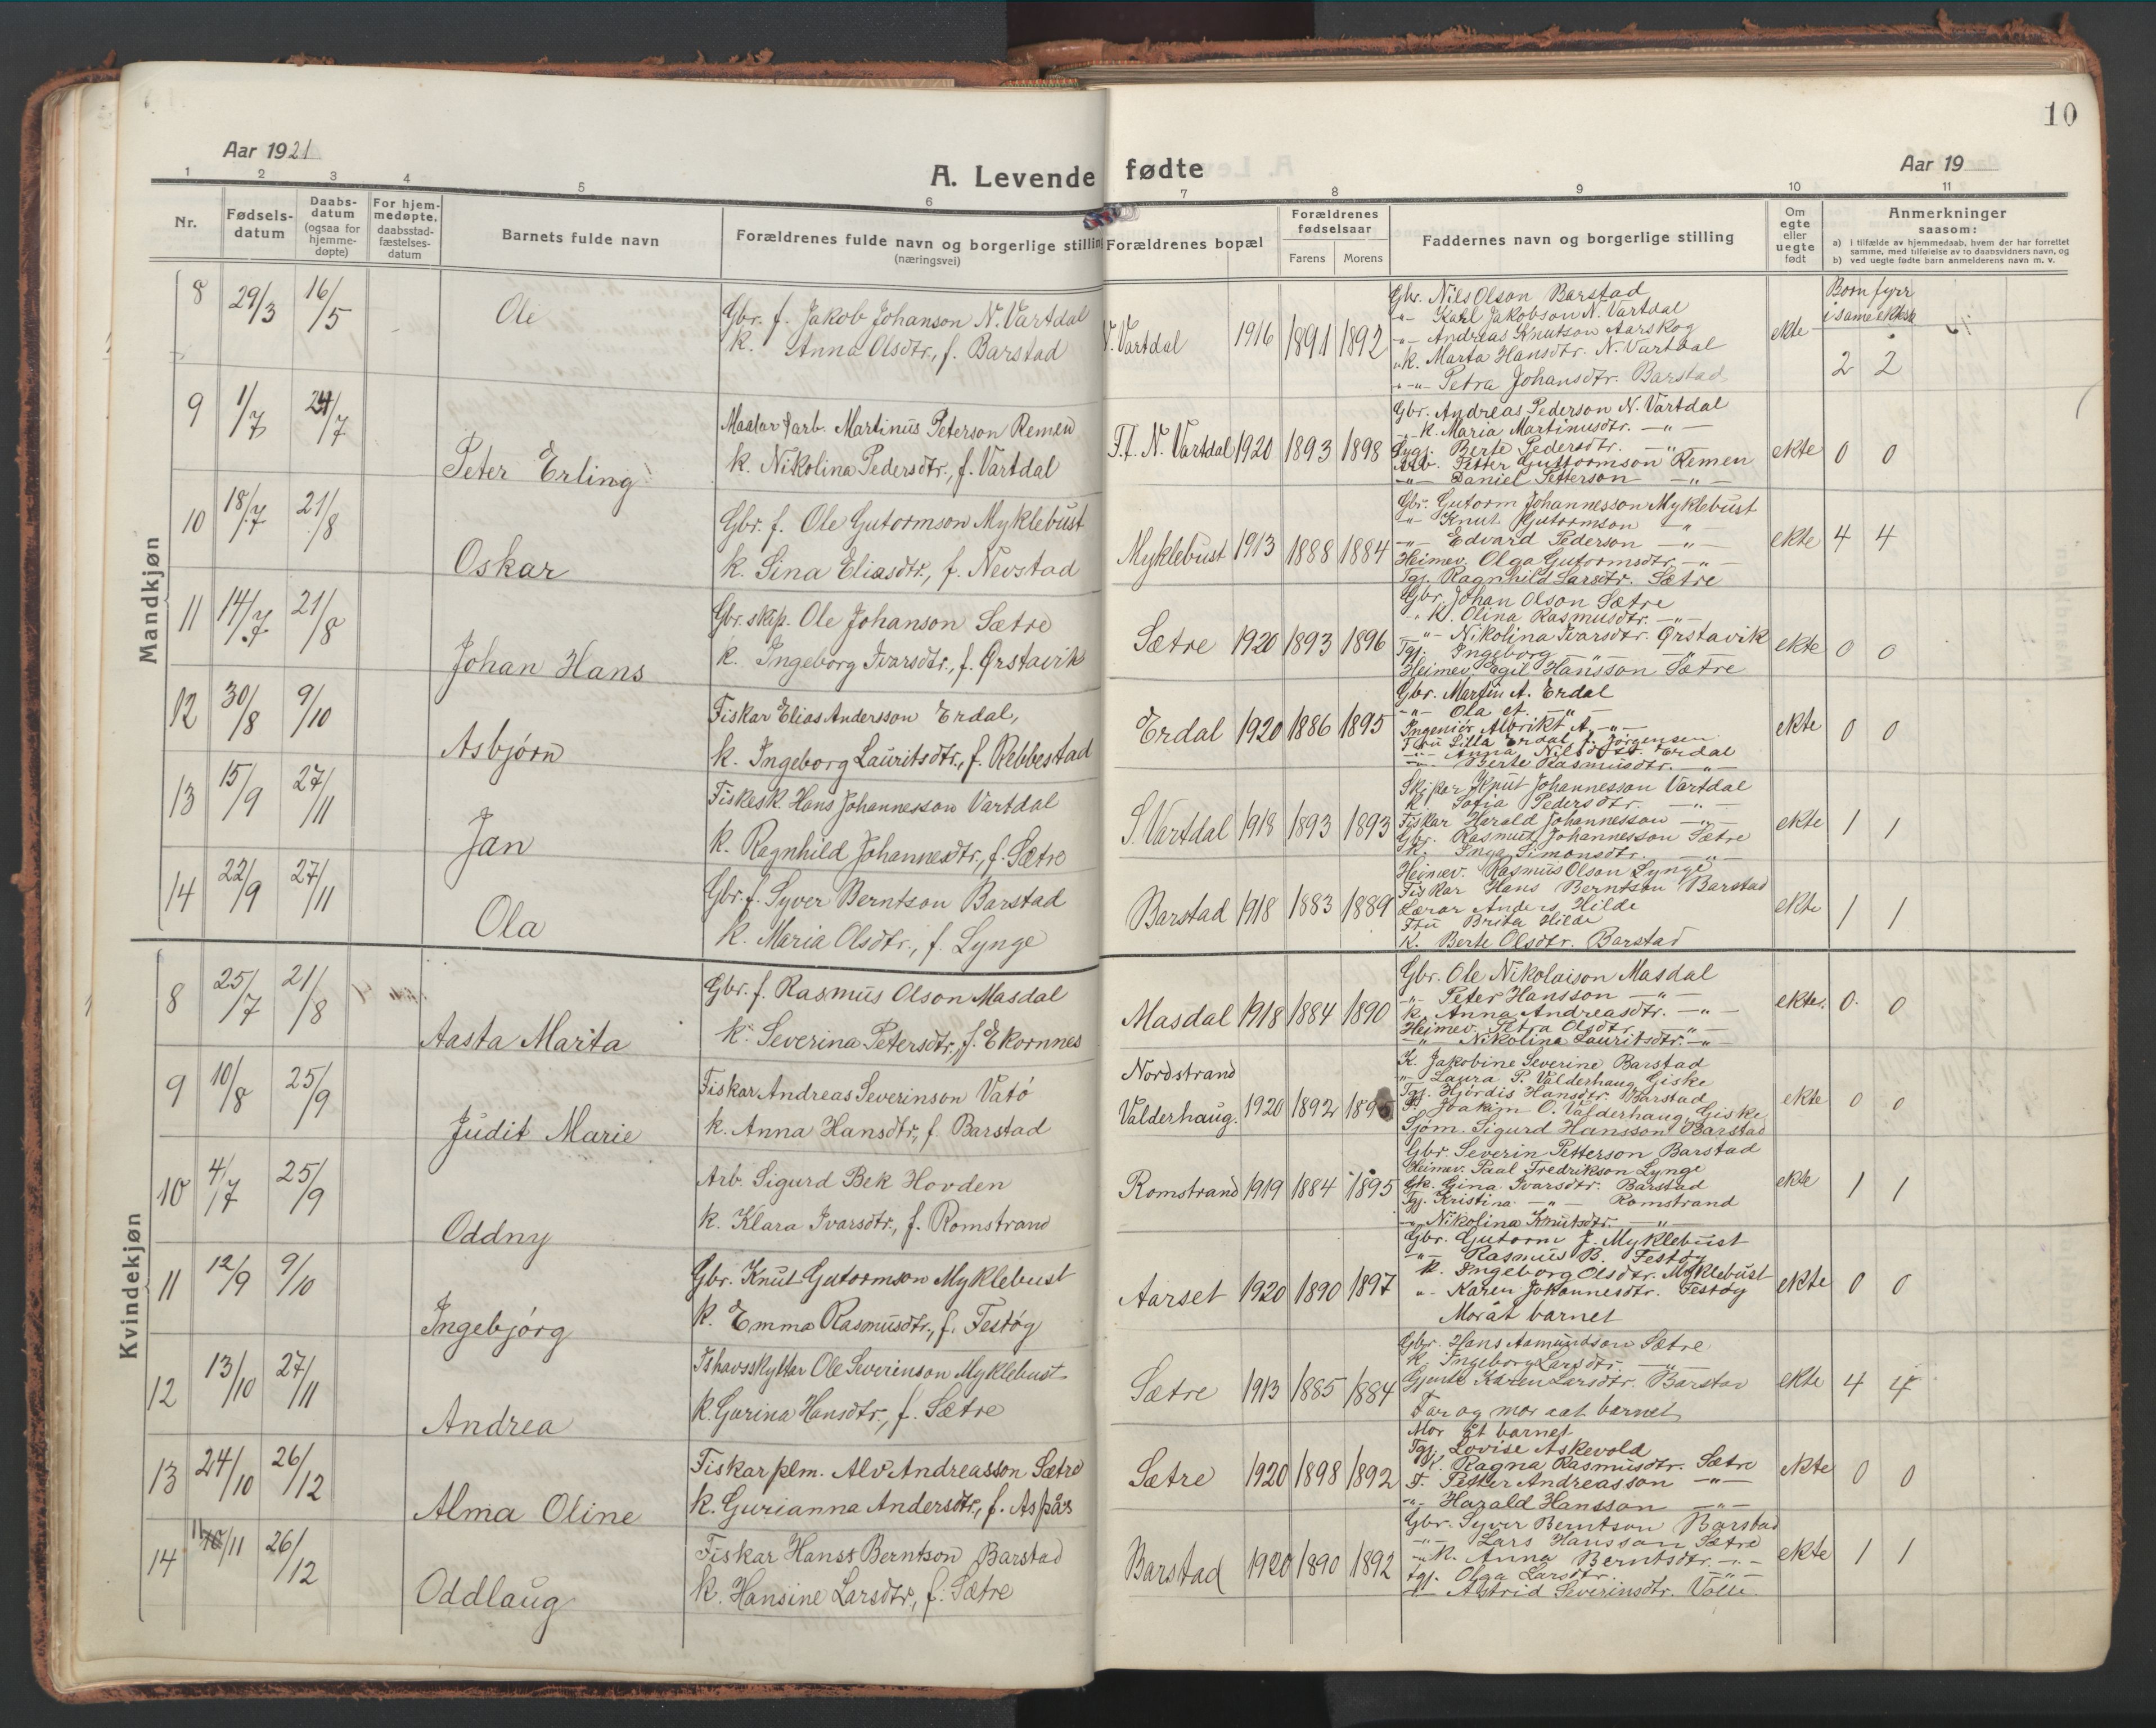 10
Aar 1921
A. Levende fødte
Aar 19
1 2 3 4 5 6 7 8 9 10 11
Nr.
Fødsels-
datum
Daabs-
datum
(ogsaa for
hjemme-
døpte)
For hjem-
medøpte,
daabsstad-
fæstelses-
datum
Barnets fulde navn
Forældrenes fulde navn og borgerlige stilling
(næringsvei)
Forældrenes bopæl
Forældrenes
fødselsaar
Farens Morens
Faddernes navn og borgerlige stilling
Om
egte
eller
uegte
født
Anmerkninger
saasom:
a) i tilfælde av hjemmedaab, hvem der har forrettet
samme, med tilføielse av to daabsvidners navn, og
b) ved uegte fødte barn anmelderens navn m. v.
Mandkjøn
8 29/3 16/5 Ole
Gbr. f. Jakob Johanson N. Vartdal
k. Anna Olsdtr., f. Barstad
N. Vartdal 1916 1891 1892
Gbr. Nils Olson Barstad
-"- Karl Jakobson N. Vartdal
-"- Andreas Knutson Aarskog
"k. Marta Hansdtr. N. Vartdal
-"- Petra Johansdtr. Barstad
ekte
Born fyrr
i same ektesk.
2 2
9 1/7 24/7 Peter Erling
Arb. Martinus Peterson Remen
k. Nikolina Pedersdtr., f. Vartdal
F.f. N. Vartdal 1920 1893 1898
Gbr. Andreas Pederson N. Vartdal
"k. Maria Martinusdtr. -"-
Berte Pedersdtr. -"-
Arb. Petter Guttormson Remen
-"- Daniel Petterson -"-
ekte 0 0
10 18/7 21/8 Oskar
Gbr. f. Ole Gutormson Myklebust
k. Sina Eliasdtr., f. Nevstad
Myklebust 1913 1888 1884
Gbr. Gutorm Johannesson Myklebust
-"- Knut Gutormson -"-
-"- Edvard Pederson -"-
Heimev. Olga Gutormsdtr. -"-
Tgj. Ragnhild Larsdtr. Sætre
ekte 4 4
11 14/7 21/8 Johan Hans
Gbr. skip. Ole Johanson Sætre
k. Ingeborg Ivarsdtr., f. Ørstavik
Sætre 1920 1893 1896
Gbr. Johan Olson Sætre
"k. Olina Rasmusdtr. -"-
-"- Nikolina Ivarsdtr. Ørstavik
Tgj. Ingeborg -"- -"-
Heimev. Egil Hansson Sætre
ekte 0 0
12 30/8 9/10 Asbjørn
Fiskar Elias Andersson Erdal,
k. Ingeborg Lauritsdtr., f. Rebbestad
Erdal 1920 1886 1895
Gbr. Martin A. Erdal
-"- Ola A. -"-
Ingeniør Albrikt A. -"-
Fru Silla Erdal f. Jørgensen
-"- Anna Nilsdtr. Erdal
-"- Berte Rasmusdtr. -"-
ekte 0 0
13 15/9 27/11 Jan
Fiskesk. Hans Johannesson Vartdal
k. Ragnhild Johannesdtr., f. Sætre
S. Vartdal 1918 1893 1893
Skipar Knut Johannesson Vartdal
k. Sofia Pedersdtr. -"-
Fiskar Harald Johannesson -"-
Gbr. Rasmus Johannesson Sætre
k. Inga Simonsdtr. -"-
ekte 1 1
14 22/9 27/11 Ola
Gbr. f. Syver Berntson Barstad
k. Maria Olsdtr., f. Lynge
Barstad 1918 1883 1889
Heimev. Rasmus Olson Lynge
Fiskar Hans Berntson Barstad
Lærar Anders Hilde
Fru Brita Hilde
k. Berte Olsdtr. Barstad
ekte 1 1
Kvindekjøn
8 25/7 21/8 Aasta Marita
Gbr. f. Rasmus Olson Masdal
k. Severina Petersdtr., f. Ekornnes
Masdal 1918 1884 1890
Gbr. Ole Nikolaison Masdal
-"- Peter Hansson -"-
k. Anna Andreasdtr. -"-
Heimev. Petra Olsdtr. -"-
-"- Nikolina Lauritsdtr. -"-
ekte. 0 0
9 10/8 25/9 Judit Marie
Fiskar Andreas Severinson Vatö
k. Anna Hansdtr., f. Barstad
Nordstrand
Valderhaug. 1920 1892 1895
K. Jakobine Severine Barstad
-"- Laura P. Valderhaug Giske
Tgj. Hjørdis Hansdtr. Barstad
F. Joakim O. Valderhaug, Giske
Sjøm. Sigurd Hansson Barstad
ekte 0 0
10 4/7 25/9 Oddny
Arb. Sigurd Bek Hovden
k. Klara Ivarsdtr., f. Romstrand
Romstrand 1919 1884 1895
Gbr. Severin Petterson Barstad
Heimev. Paal Fredrikson Lynge
Gk. Gina Ivarsdtr. Barstad
Tgj. Kristina -"- Romstrand
-"- Nikolina Knutsdtr. -"-
ekte 1 1
11 12/9 9/10 Ingebjørg
Gbr. Knut Gutormson Myklebust
k. Emma Rasmusdtr., f. Festøy
Aarset 1920 1890 1897
Gbr. Gutorm J. Myklebust
-"- Rasmus B. Festøy
k. Ingeborg Olsdtr. Myklebust
"- Karen Johannesdtr. Festøy
Mor åt barnet
ekte 0 0
12 13/10 27/11 Andrea
Ishavsskyttar Ole Severinson Myklebust
k. Gurina Hansdtr., f. Sætre
Sætre 1913 1885 1884
Gbr. Hans Asmundson Sætre
k. Ingeborg Larsdtr. -"-
Gjente Karen Larsdtr. Barstad
Far og mor aat barnet
ekte 4 4
13 24/10 26/12 Alma Oline
Fiskar plm. Alv Andreasson Sætre
k. Gurianna Andersdtr., f. Aspås
Sætre 1920 1898 1892
Mor åt barnet
Tgj. Lovise Askevold
K. Ragna Rasmusdtr. Sætre
F. Petter Andreasson -"-
-"- Harald Hansson -"-
ekte 0 0
14 11/11 26/12 Oddlaug
Fiskar Hans Berntson Barstad
k. Hansine Larsdtr., f. Sætre
Barstad 1920 1890 1892
Gbr. Syver Berntson Barstad
-"- Lars Hansson Sætre
-"k. Anna Berntsdtr. -"-
tgj. Olga Larsdtr. -"-
-"- Astrid Severinsdtr.
ekte 1 1